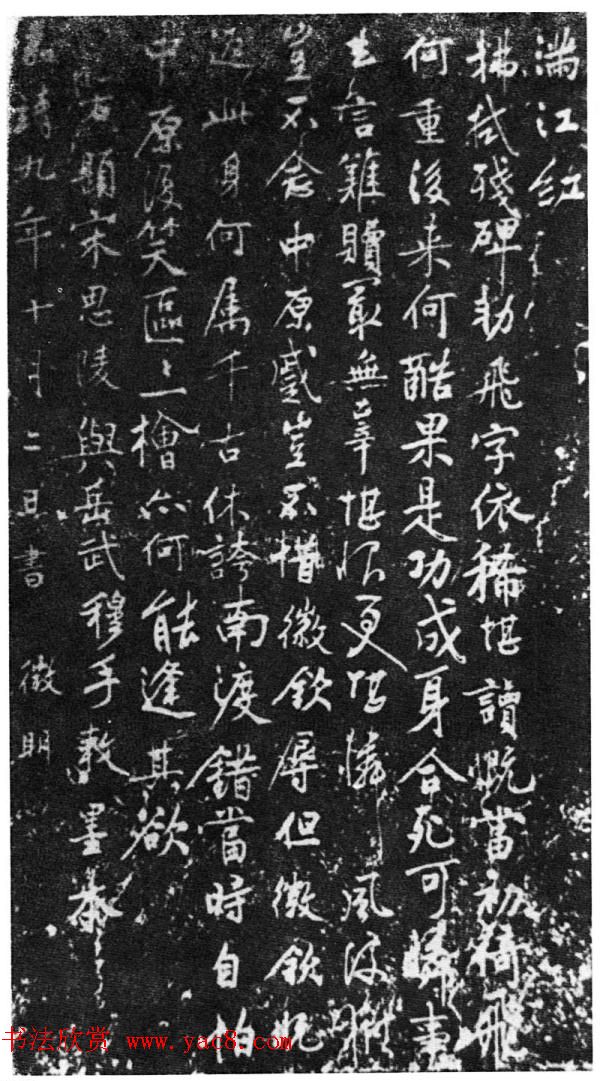 满江红
拂拭残碑勑飛字依稀堪讀慨當初倚飛
何重後来何酷果是功成身合死可憐事
去言難贖最無辜堪恨更堪憐風波獄
豈不念中原蹙豈不惜徽欽辱但徽欽既
返此身何属千古休誇南渡錯當時自怕
中原復笑區〻一檜亦何能逢其欲
右題宋思陵與岳武穆手敕墨本
嘉靖九年十月二日書 徵明
书法欣赏 www.yac8.com